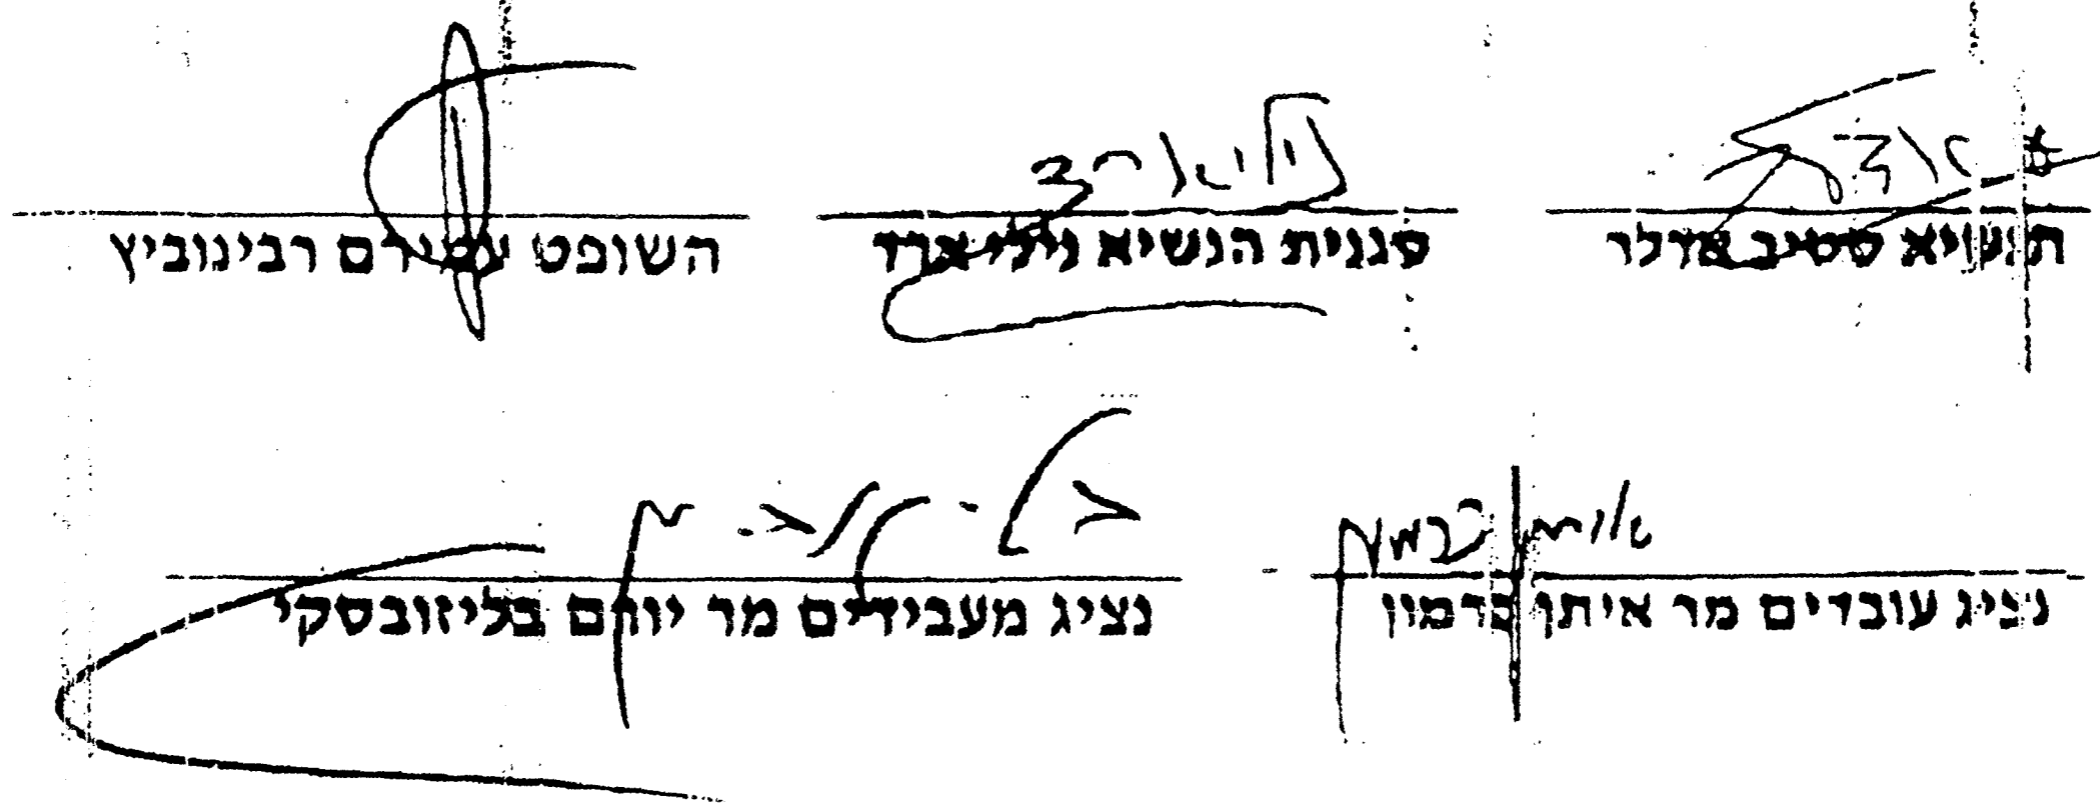 הנשיא סטיב אדלר סגנית הנשיא נילי ארד השופט עמירם רבינוביץ
נציג עובדים מר איתן כרמון נציג מעבידים מר יורם בליזובסקי